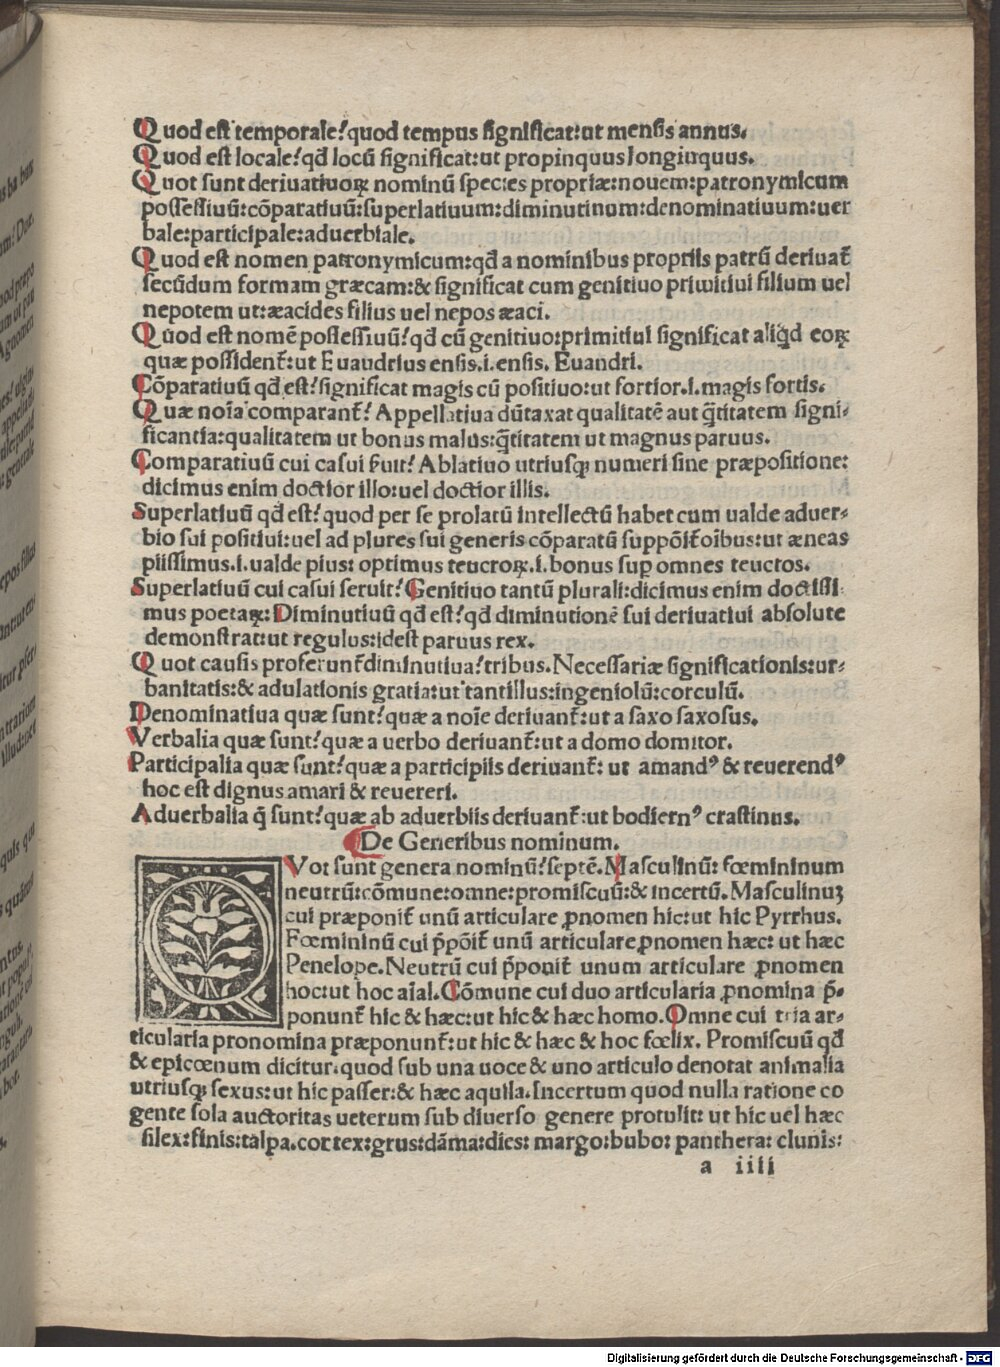 Quod est temporale? quod tempus significat: ut mensis annus.
Quod est locale? qđ locū significat: ut propinquus longinquus.
Quot sunt deriuatiuoꝝ nominū species propriæ: nouem: patronymicum
possessiuū: cōparatiuū: superlatiuum: diminutinum: denominatiuum: uer
bale: participale: aduerbiale.
Quod est nomen patronymicum: qđ a nominibus propriis patrū deriuat̄
secūdum formam græcam: & significat cum genitiuo priwitiui filium uel
nepotem ut: æacides filius uel nepos æaci.
Quod est nomē possessiuū? qđ cū genitiuo: primitiui significat aliq̄d eoꝝ
quæ possident̄: ut Euaudrius ensis .i. ensis. Euandri.
Cōparatiuū qđ est? significat magis cū positiuo: ut fortior .i. magis fortis.
Quæ noīa comparant̄? Appellatiua dūtaxat qualitatē aut q̄titatem signi-
ficantia: qualitatem ut bonus malus: q̄titatem ut magnus paruus.
Comparatiuū cui casui fuit? Ablatiuo utriusqȝ numeri sine præpositione:
dicimus enim doctior illo: uel doctior illis.
Superlatiuū qđ est? quod per se prolatū intellectū habet cum ualde aduer-
bio sui positiui: uel ad plures sui generis cōparatū suppōit̄ oībus: ut æneas
piissimus .i. ualde pius: optimus teucroꝝ .i. bonus sup omnes teuctos.
Superlatiuū cui casui seruit? Genitiuo tantū plurali: dicimus enim doctissi
mus poetaꝝ: Diminutiuū qđ est? qđ diminutionē sui deriuatiui absolute
demonstrat: ut regulus: idest paruus rex.
Quot causis proferunt̄ diminutiua? tribus. Necessariæ significationis: ur-
banitatis: & adulationis gratia: ut tantillus: ingeniolū: corculū.
Denominatiua quæ sunt? quæ a noīe deriuant̄: ut a saxo saxosus.
Verbalia quæ sunt? quæ a uerbo deriuant̄: ut a domo domitor.
Participalia quæ sunt? quæ a participiis deriuant̄: ut amandꝰ & reuerendꝰ
hoc est dignus amari & reuereri.
Aduerbalia q̄ sunt? quæ ab aduerbiis deriuant̄: ut bodiernꝰ crastinus.
De Generibus nominum.
QVot sunt genera nominū? septē. Masculinū: fœmininum
neutrū: cōmune: omne: promiscuū: & incertū. Masculinuȝ
cui præponit̄ unū articulare ꝓnomen hic: ut hic Pyrrhus.
Fœmininū cui p̄pōit̄ unū articulare ꝓnomen hæc: ut hæc
Penelope. Neutrū cui p̄ponit̄ unum articulare ꝓnomen
hoc: ut hoc aīal. Cōmune cui duo articularia ꝓnomina p̄-
ponunt̄ hic & hæc: ut hic & hæc homo. Omne cui tria ar-
ticularia pronomina præponunt̄: ut hic & hæc & hoc fœlix. Promiscuū qđ
& epicœnum dicitur: quod sub una uoce & uno articulo denotat animalia
utriusqȝ sexus: ut hic passer: & hæc aquila. Incertum quod nulla ratione co
gente sola auctoritas ueterum sub diuerso genere protulit: ut hic uel hæc
silex: finis: talpa. cortex: grus: dāma: dies: margo: bubo: panthera: clunis:
a iiii
Digitalisierung gefördert durch die Deutsche Forschungsgemeinschaft - DFG